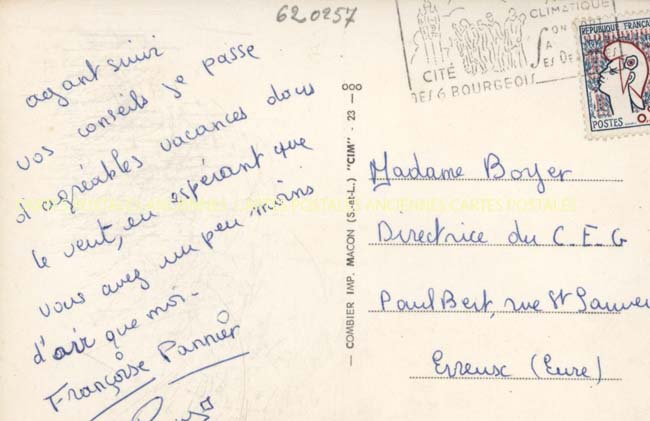 620257
CLIMATIQUE
CITÉ
DES 6 BOURGEOIS
RÉPUBLIQUE FRANÇAISE
POSTES
ayant suivi
vos conseils je passe
d'agréables vacances dans
le vent, en espérant que
vous avez un peu moins
d'air que moi.
Françoise Pannier
CARTES POSTALES ANCIENNES CARTES POSTALES ANCIENNES CARTES POSTALES
— COMBIER IMP. MACON (S.-et-L.) "CIM" - 23 —
Madame Boyer
Directrice du C.E.G
Paul Bert, rue St Sauveu
Evreux (Eure)